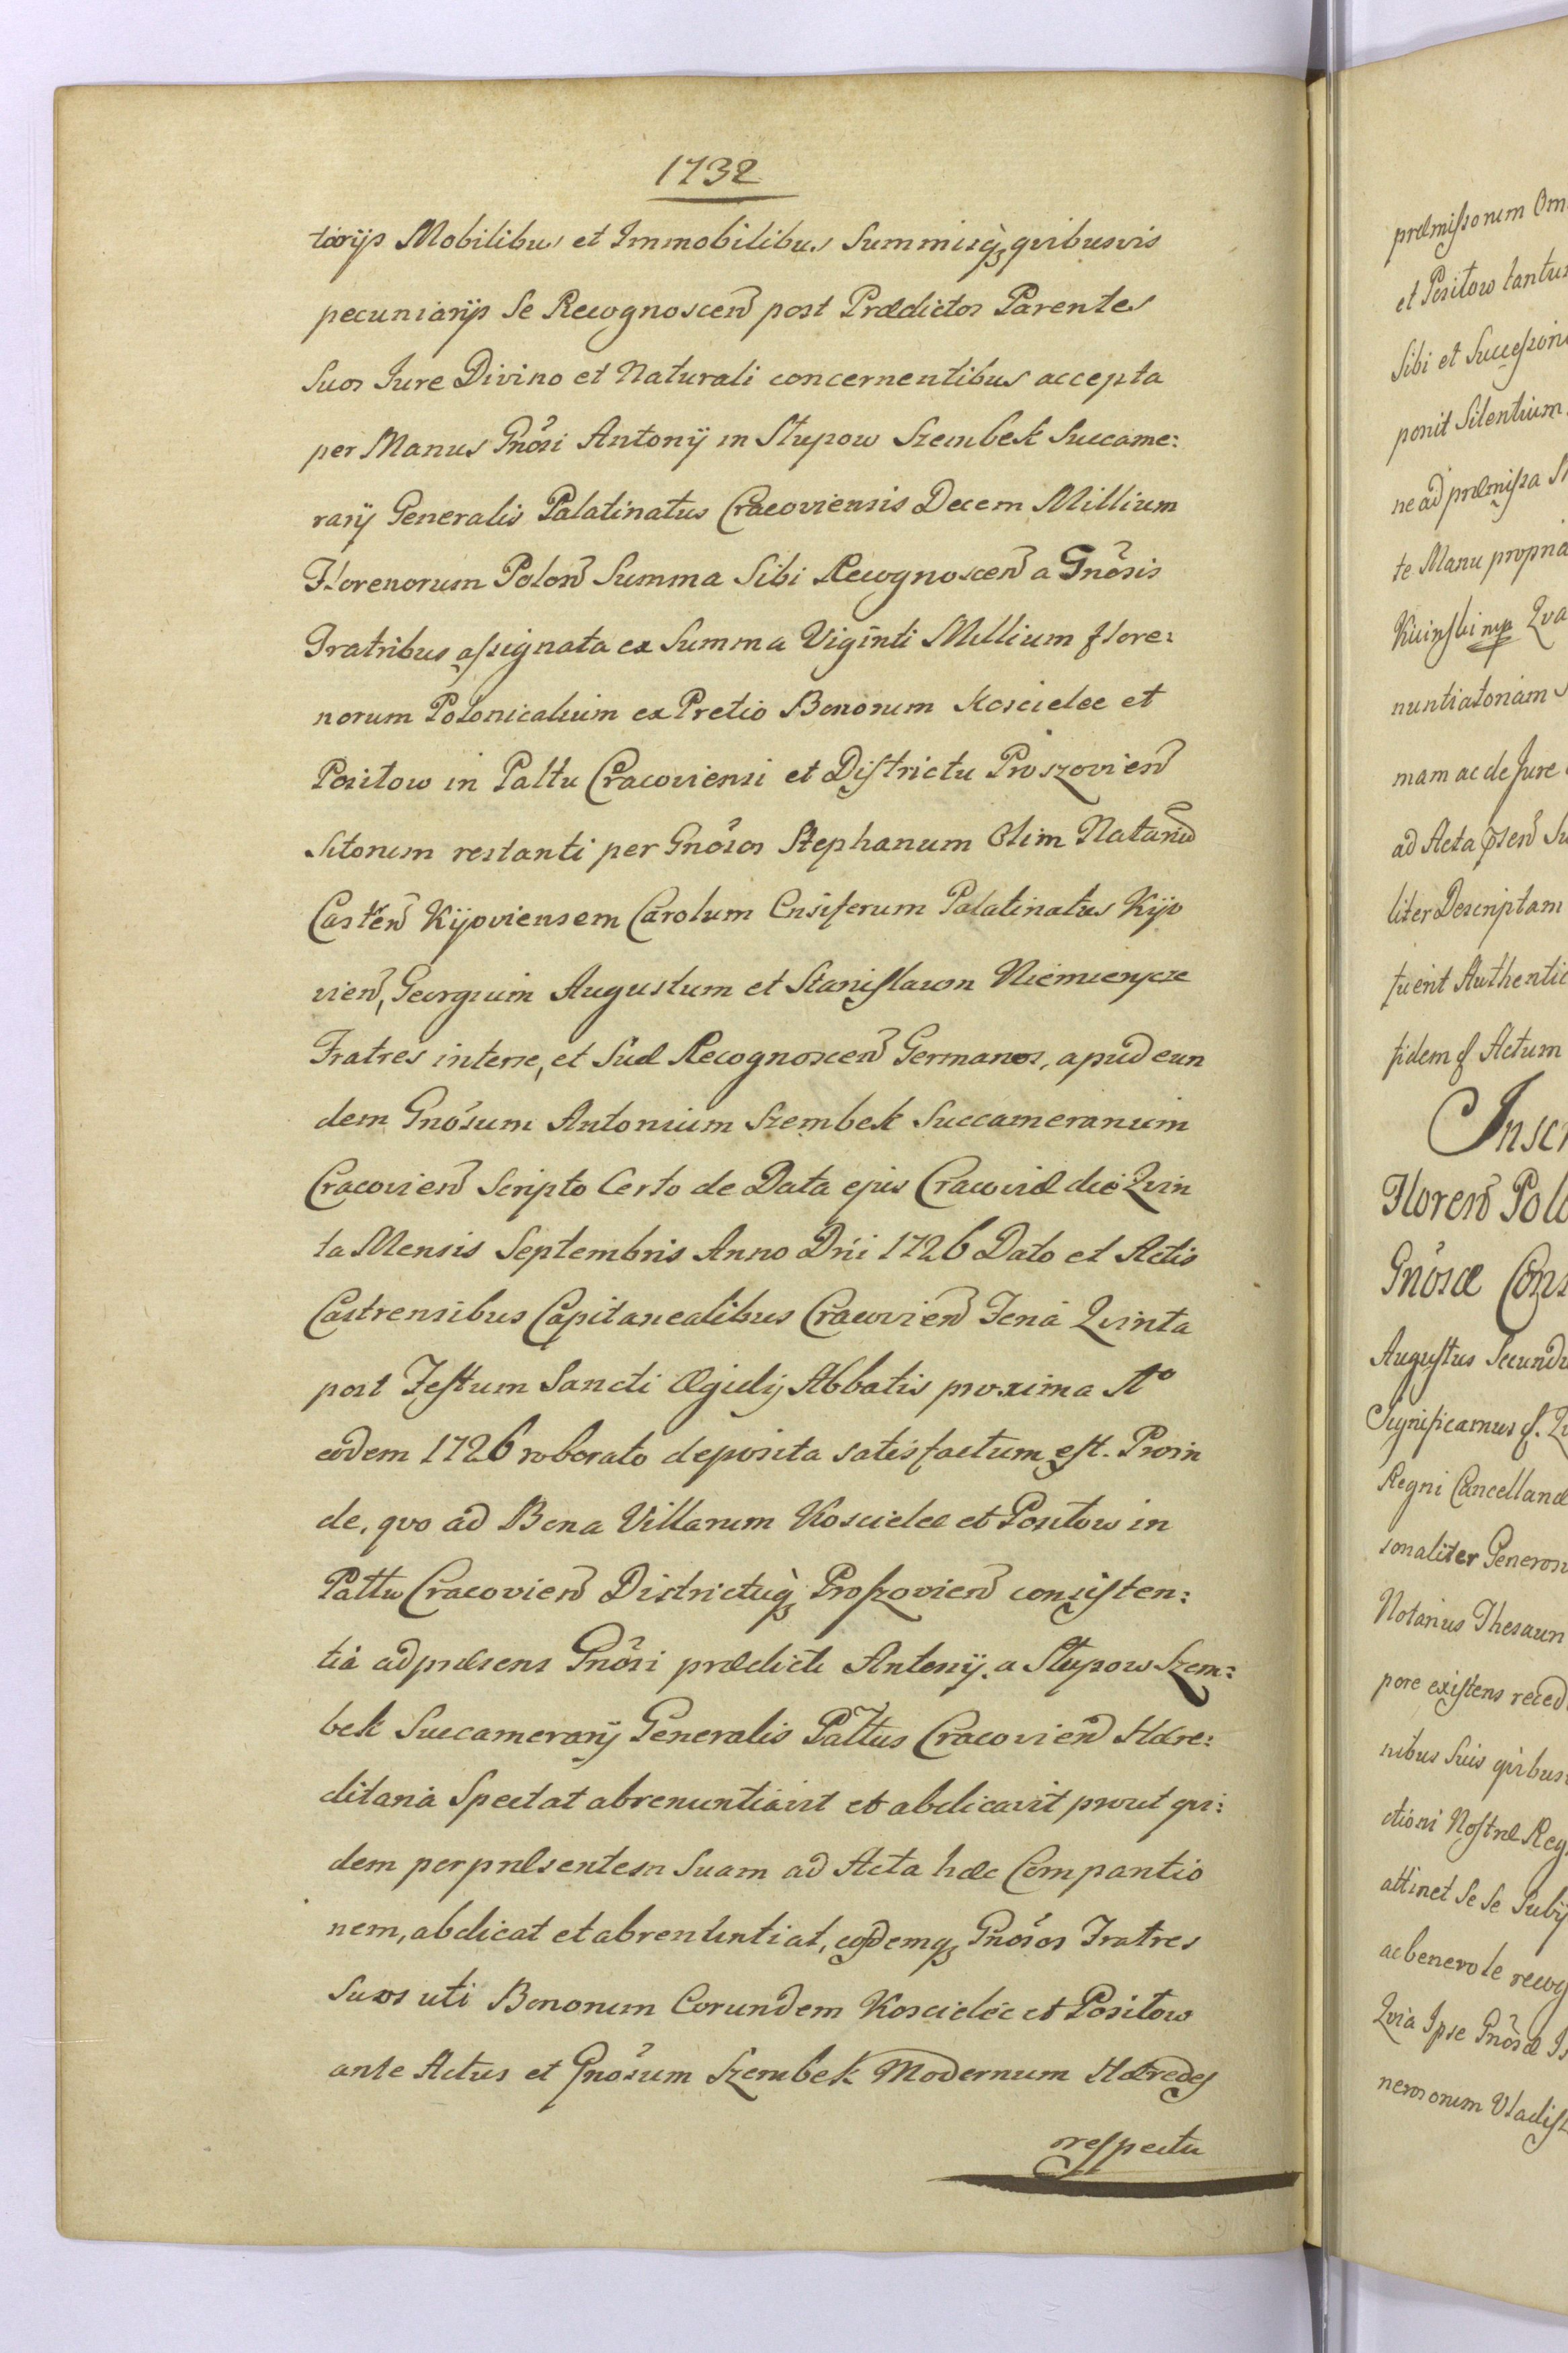 1732
torijs Mobilibus et Immobilibus Summisq̨ qvibusvis
pecuniarijs Se Recognoscen̄ post Prædictos Parentes
Suos Jure Divino et Naturali concernentibus accepta
per Manus Gn̄osi Antonij in Słupow Szembek Succame:
rarij Generalis Palatinatus Cracoviensis Decem Millium
Florenorum Polon̄ Summa Sibi Recognoscen̄ a Gn̄osis
Fratribus assignata ex Summa Viginti Millium flore:
norum Polonicalium ex Pretio Bonorum Koscielec et
Positow in Palttu Cracoviensi et Districtu Proszovien̄
Sitorum restanti per Gn̄osos Stephanum Olim Natan̄
Castēn̄ Kijoviensem Carolum Ensiferum Palatinatus Kijo
vien̄, Georgium Augustum et Stanislaum Niemierycze
Fratres interse, et Suæ Recognoscen̄ Germanos, apud eun
dem Gn̄osum Antonium Szembek Succamerarium
Cracovien̄ Scripto Certo de Data ejus Cracoviæ die Qvin
ta Mensis Septembris Anno Dn̄i 1726 Dato et Actis
Castrensibus Capitanealibus Cracovien̄ Feria Qvinta
post Festum Sancti Ægidij Abbatis proxima Aº
eodem 1726 roborato deposita satisfactum est. Proin
de, qvo ad Bona Villarum Koscielec et Positow in
Palttu Cracovien̄ Districtuq̨ Proszovien̄ consisten:
tia ad præsens Gn̄osi prædicti Antonij a Słupow Szem:
bek Succamerarij Generalis Palttus Cracovien̄ Hære:
ditaria Spectat abrenuntiavit et abdicavit prout qvi:
dem per præsentem Suam ad Acta hæc Comparitio
nem, abdicat et abrenuntiat, eosdemq̨ Gn̄osos Fratres
Suos uti Bonorum Eorundem Koscielec et Positow
ante Actus et Gn̄osum Szembek Modernum Hæredes
respectu
præmissorum Om
et Positow tantu
Sibi et Succession
ponit Silentium
ne ad præmissa
te Manu propria
Kicinski mp Qva
nuntiatoriam
mam ac de Jure
ad Acta præsen̄ Su
liter Descriptam
fuerit Authentic
fidem &. Actum
Inscr
Floren̄ Polo
Gn̄osæ Cons
Augustus Secundu
Significamus &. Q
Regni Cancellariæ
sonaliter Generosu
Notarius Thesauri
pore existens reced
ribus Suis qvibus
ctioni Nostræ Reg
attinet Se Se Subij
ac benevole recog
Qvia Ipse Gn̄osæ
nerosorum Vladisl